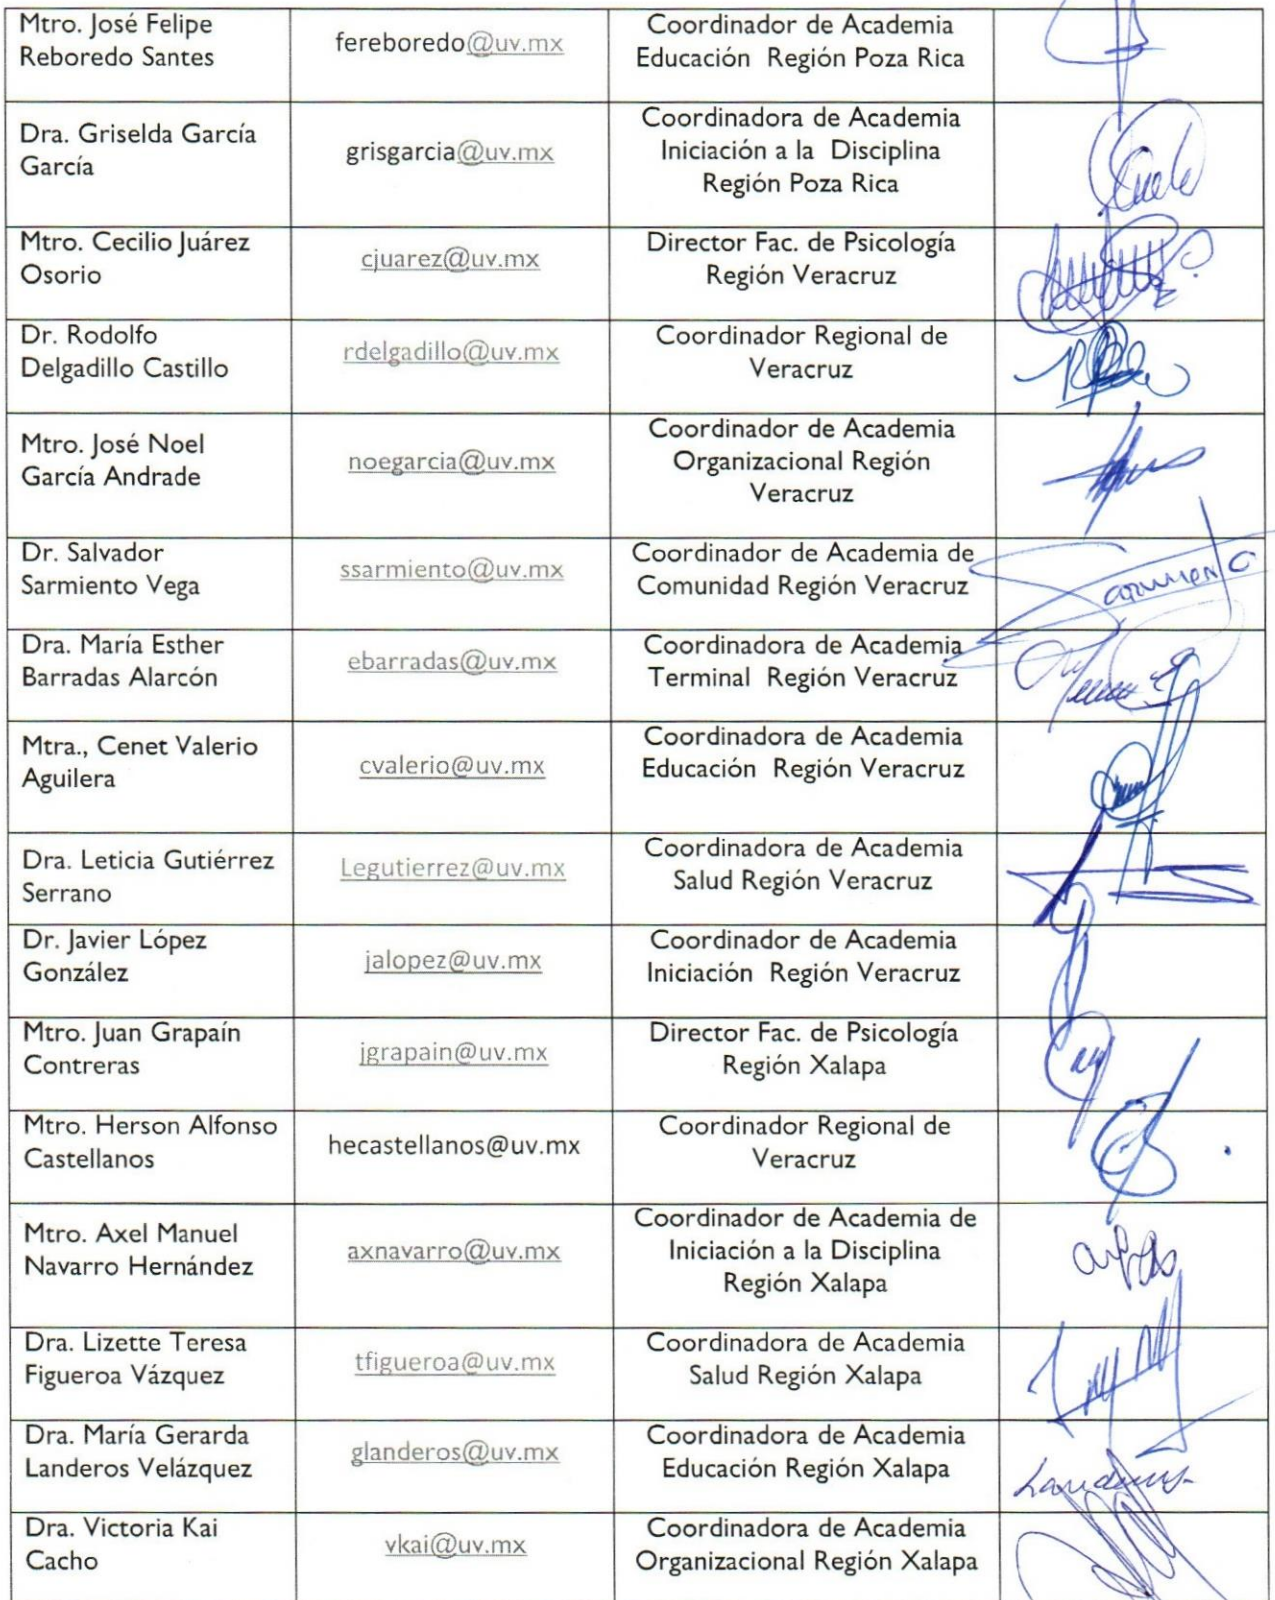 Mtro. José Felipe
Reboredo Santes
fereboredo@uv.mx
Coordinador de Academia
Educación Región Poza Rica
Dra. Griselda García
García
grisgarcia@uv.mx
Coordinadora de Academia
Iniciación a la Disciplina
Región Poza Rica
Mtro. Cecilio Juárez
Osorio
cjuarez@uv.mx
Director Fac. de Psicología
Región Veracruz
Dr. Rodolfo
Delgadillo Castillo
rdelgadillo@uv.mx
Coordinador Regional de
Veracruz
Mtro. José Noel
García Andrade
noegarcia@uv.mx
Coordinador de Academia
Organizacional Región
Veracruz
Dr. Salvador
Sarmiento Vega
ssarmiento@uv.mx
Coordinador de Academia de
Comunidad Región Veracruz
Dra. María Esther
Barradas Alarcón
ebarradas@uv.mx
Coordinadora de Academia
Terminal Región Veracruz
Mtra., Cenet Valerio
Aguilera
cvalerio@uv.mx
Coordinadora de Academia
Educación Región Veracruz
Dra. Leticia Gutiérrez
Serrano
Legutierrez@uv.mx
Coordinadora de Academia
Salud Región Veracruz
Dr. Javier López
González
jalopez@uv.mx
Coordinador de Academia
Iniciación Región Veracruz
Mtro. Juan Grapaín
Contreras
jgrapain@uv.mx
Director Fac. de Psicología
Región Xalapa
Mtro. Herson Alfonso
Castellanos
hecastellanos@uv.mx
Coordinador Regional de
Veracruz
Mtro. Axel Manuel
Navarro Hernández
axnavarro@uv.mx
Coordinador de Academia de
Iniciación a la Disciplina
Región Xalapa
Dra. Lizette Teresa
Figueroa Vázquez
tfigueroa@uv.mx
Coordinadora de Academia
Salud Región Xalapa
Dra. María Gerarda
Landeros Velázquez
glanderos@uv.mx
Coordinadora de Academia
Educación Región Xalapa
Landeros
Dra. Victoria Kai
Cacho
vkai@uv.mx
Coordinadora de Academia
Organizacional Región Xalapa